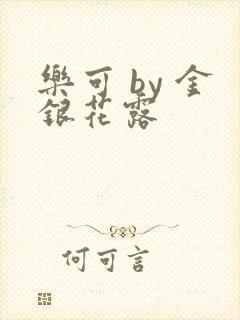 樂可 by 金
銀花露
何可言